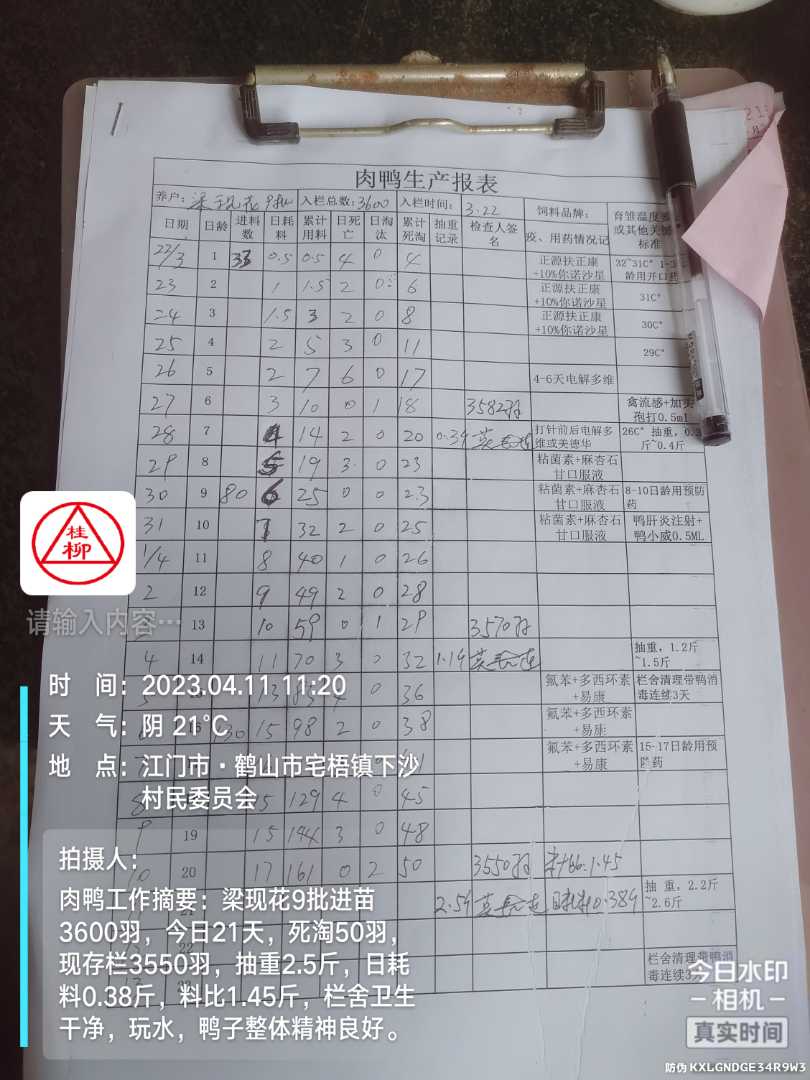 肉鸭生产报表
养户: 梁现花9批 入栏总数:3600 入栏时间: 3.22 饲料品牌: 育雏温度
日期 日龄 进料数 日耗料 累计用料 日死亡 日淘汰 累计死淘 抽重记录 检查人签名 疫、用药情况记 或其他关键 标准
22/3 1 33 0.5 0.5 4 0 4 正源扶正康+10%你诺沙星 32~31C° 1-3 龄用开口药
23 2 1 1.5 2 0 6 正源扶正康+10%你诺沙星 31C°
24 3 1.5 3 2 0 8 正源扶正康+10%你诺沙星 30C°
25 4 2 5 3 0 11 29C°
26 5 2 7 6 0 17 4-6天电解多维
27 6 3 10 0 1 18 3582羽 禽流感+加 孢打0.5ml
28 7 4 14 2 0 20 打针前后电解多维或美德华 26C° 抽重，0.3斤~0.4斤
29 8 5 19 3 0 23 粘菌素+麻杏石甘口服液
30 9 80 6 25 0 0 23 粘菌素+麻杏石甘口服液 8-10日龄用预防药
31 10 7 32 2 0 25 粘菌素+麻杏石甘口服液 鸭肝炎注射+鸭小威0.5ML
1/4 11 8 40 1 0 26
2 12 9 49 2 0 28
13 10 59 0 1 29 3570羽
4 14 11 70 3 0 32 抽重，1.2斤~1.5斤
5 13 83 0 36 氟苯+多西环素+易康 栏舍清理带鸭消毒连续3天
30 15 98 2 0 38 氟苯+多西环素+易康
氟苯+多西环素+易康 15-17日龄用预防药
8 15 129 4 0 45
9 19 15 144 3 0 48
10 20 17 161 0 2 50 3550羽 1.45
抽重，2.2斤~2.6斤
22
栏舍清理带鸭消毒连续3天
桂柳
请输入内容…
时 间：2023.04.11 11:20
天 气：阴 21℃
地 点：江门市·鹤山市宅梧镇下沙
村民委员会
拍摄人：
肉鸭工作摘要：梁现花9批进苗
3600羽，今日21天，死淘50羽，
现存栏3550羽，抽重2.5斤，日耗
料0.38斤，料比1.45斤，栏舍卫生
干净，玩水，鸭子整体精神良好。
今日水印
相机
真实时间
防伪 KXLGNDGE34R9W3